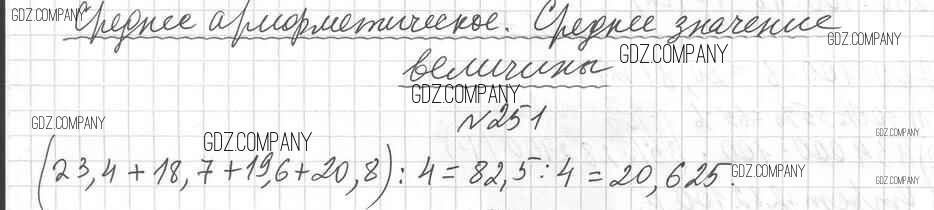 GDZ.COMPANY
Среднее арифметическое. Среднее значение
GDZ.COMPANY
GDZ.COMPANY
величины
GDZ.COMPANY
№251
GDZ.COMPANY
GDZ.COMPANY
GDZ.COMPANY
(23,4+18,7+19,6+20,8):4=82,5:4=20,625.
GDZ.COMPANY
GDZ.COMPANY